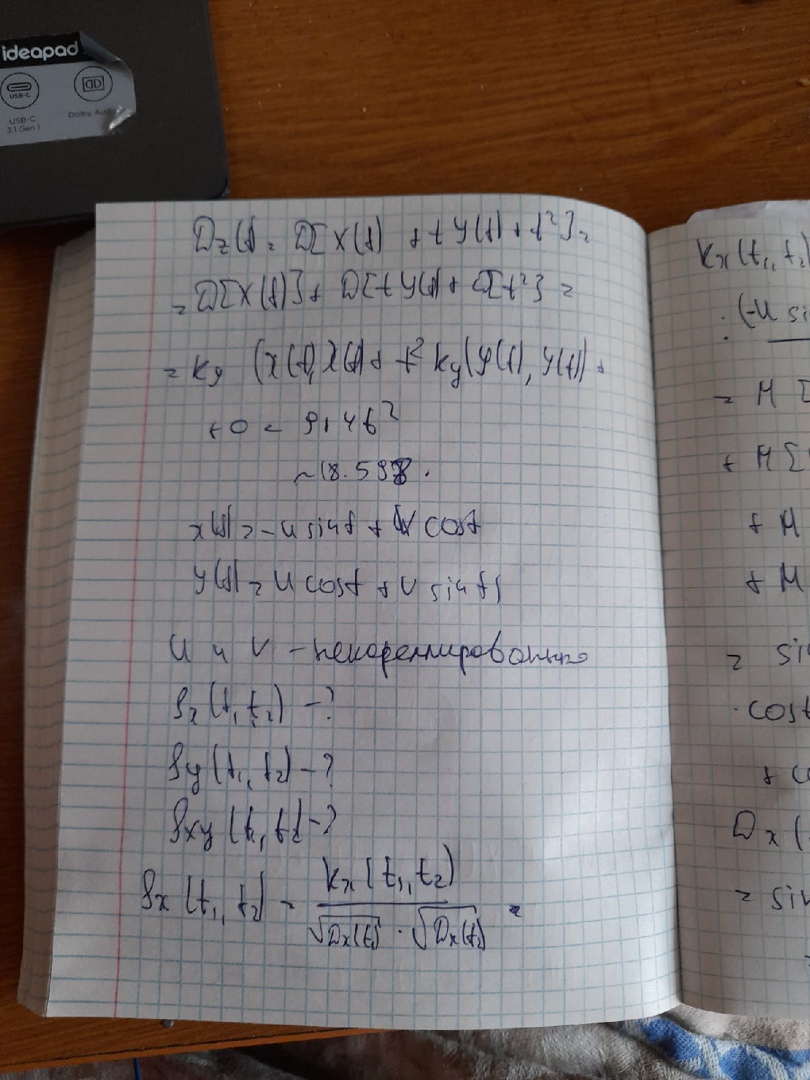 ideapad
USB-C
USB-C
3.1 Gen 1
Dolby Audio
Dz(t) = D[X(t) + t Y(t) + t²] =
= D[X(t)] + D[t Y(t)] + D[t²] =
= Kx (X(t), X(t)) + t² Ky (Y(t), Y(t)) +
+ 0 = 9,4t²
~18.598.
x(t) = -U sin t + V cos t
y(t) = U cos t + V sin t
U и V - некореллированные
ρx (t₁, t₂) - ?
ρy (t₁, t₂) - ?
ρxy (t₁, t₂) - ?
ρx (t₁, t₂) = Kx (t₁, t₂) / √Dx(t₁) · √Dx(t₂) =
Kx (t₁, t₂)
· (-U si
= M [
+ M [
+ M
+ M
= sin
· cos t
+ co
Dx (
= sin